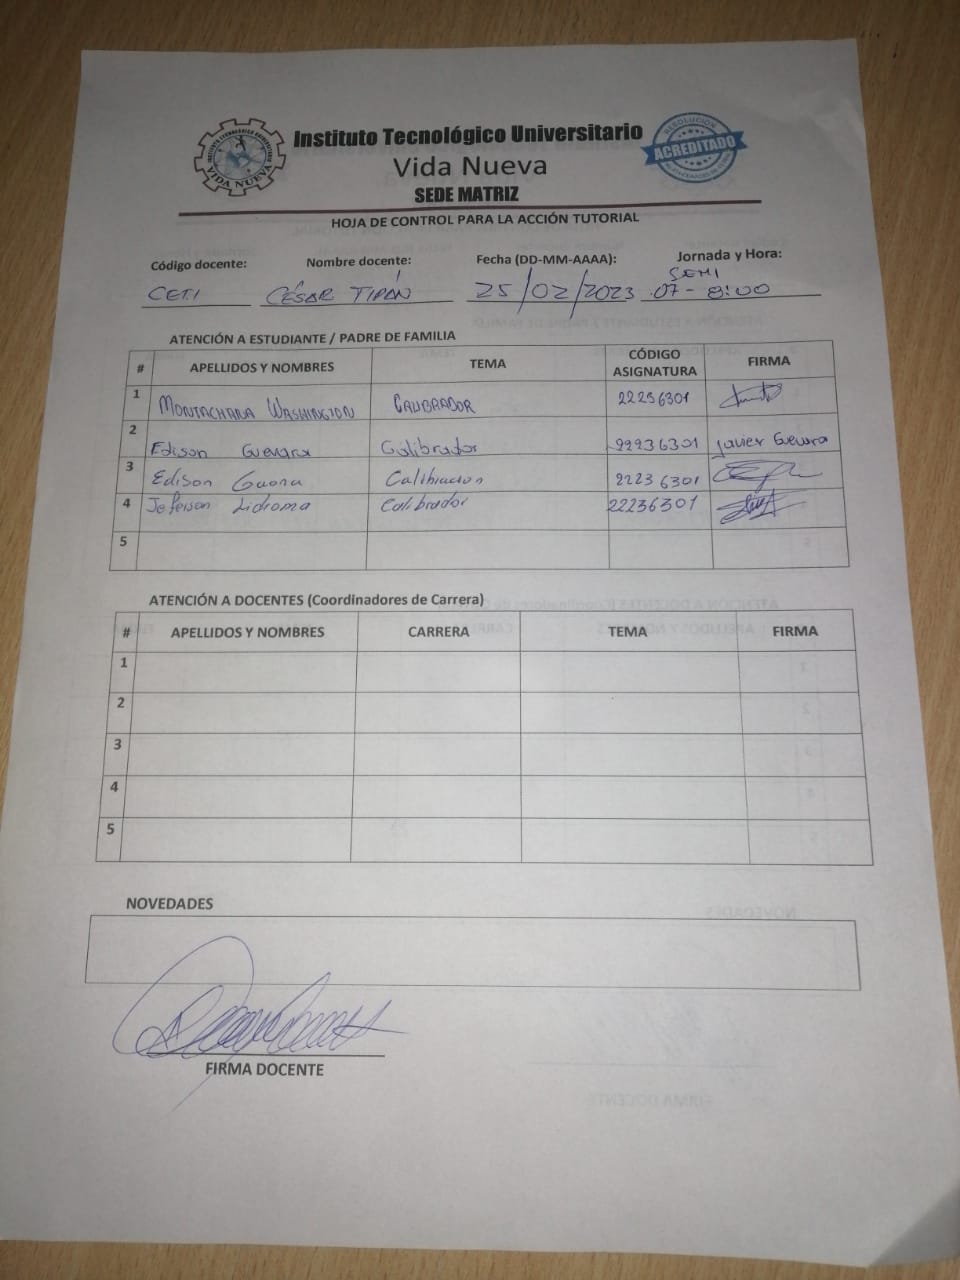 Instituto Tecnológico Universitario
Vida Nueva
SEDE MATRIZ
VIDA NUEVA
RESOLUCIÓN
ACREDITADO
HOJA DE CONTROL PARA LA ACCIÓN TUTORIAL
Código docente: Nombre docente: Fecha (DD-MM-AAAA): Jornada y Hora:
SEMI
CETI CÉSAR TIPÁN 25/02/2023 07-8:00
ATENCIÓN A ESTUDIANTE / PADRE DE FAMILIA
# APELLIDOS Y NOMBRES TEMA CÓDIGO ASIGNATURA FIRMA
1 MONTACHANA WASHINGTON CALIBRADOR 22236301
2 Edison Guevara Calibrador 22236301 Javier Guevara
3 Edison Guona Calibracion 22236301
4 Jeferson Lidioma Calibrador 22236301
5
ATENCIÓN A DOCENTES (Coordinadores de Carrera)
# APELLIDOS Y NOMBRES CARRERA TEMA FIRMA
1
2
3
4
5
NOVEDADES
FIRMA DOCENTE